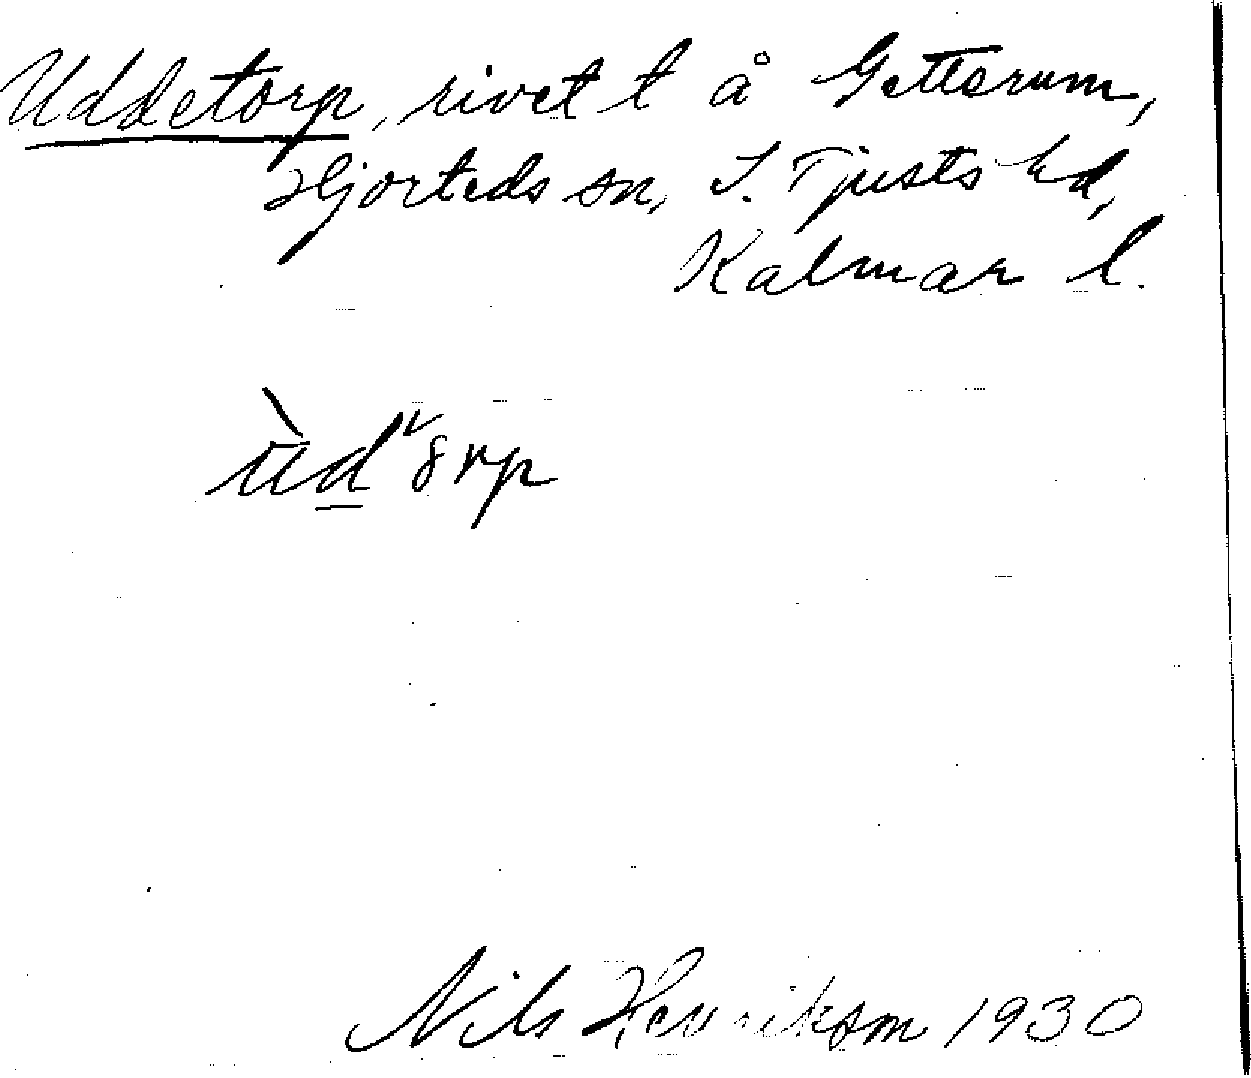 Uddetorp, rivet t å Getterum,
Hjorteds sn, S. Tjusts hd,
Kalmar l.
Nils Henrikson 1930